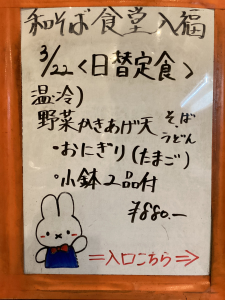 和そば食堂入福
3/22<日替定食>
温冷)
野菜かきあげ天 そば うどん
・おにぎり(たまご)
・小鉢2品付
¥880.—
=入口こちら⇒